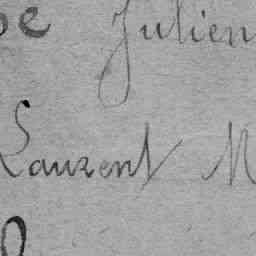 Julien
Laurent